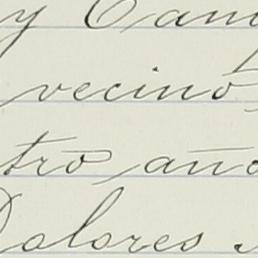 y Can
vecino
tro año
Dolores